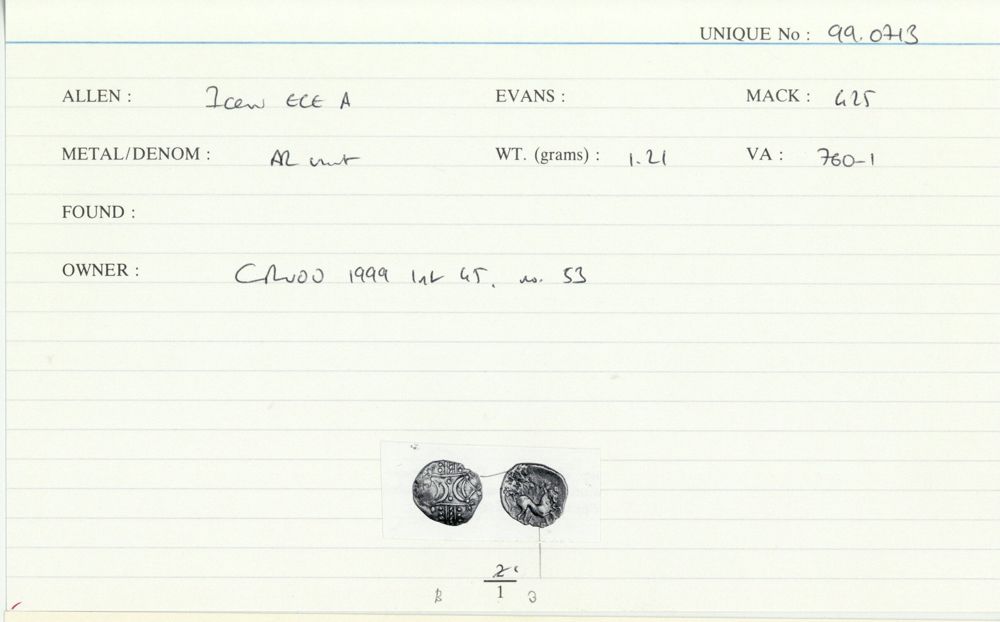 UNIQUE No : 99.0713
ALLEN : Icen ECE A EVANS : MACK : 425
METAL/DENOM : AR unit WT. (grams) : 1.21 VA : 760-1
FOUND :
OWNER : 1999 45. no. 53
1
B 3